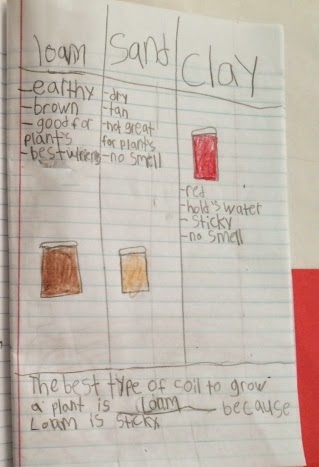 loam
-earthy
-brown
-good for
plant's
-best nutrients
Sand
-dry
-tan
-not great
for plant's
-no smell
Clay
-red
-hold's water
-sticky
-no smell
The best type of coil to grow
a plant is Loam because
Loam is sticky